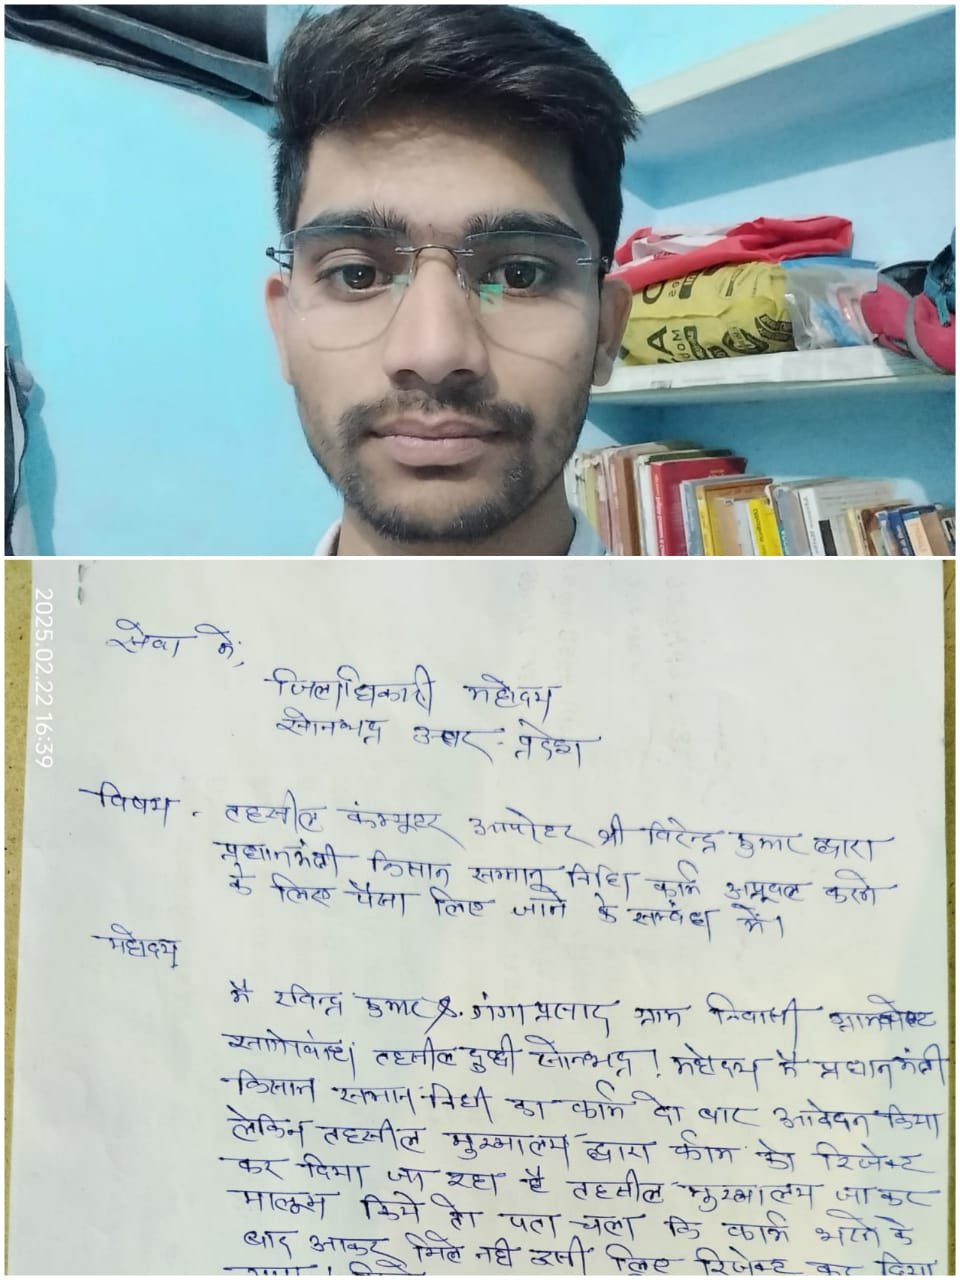 2025.02.22 16:39
सेवा में,
जिलाधिकारी महोदय
सोनभद्र उत्तर-प्रदेश
विषय - तहसील कंम्यूटर आपरेटर श्री विरेन्द्र कुमार द्वारा
प्रधानमंत्री किसान सम्मान निधि फार्म अप्रूवल करने
के लिए पैसा लिए जाने के सम्बंध में।
महोदय
मै रविन्द्र कुमार S. गंगा प्रसाद ग्राम निवासी
तहसील दुद्धी सोनभद्र! महोदय मै प्रधानमंत्री
किसान सम्मान-निधी का फार्म दो बार आवेदन किया
लेकिन तहसील मुख्यालय द्वारा फार्म को रिजेक्ट
कर दिया जा रहा है तहसील मुख्यालय जाकर
मालूम किये तो पता चला कि फार्म भरने के
बाद आकर मिले नही इसी लिए रिजेक्ट कर दिया